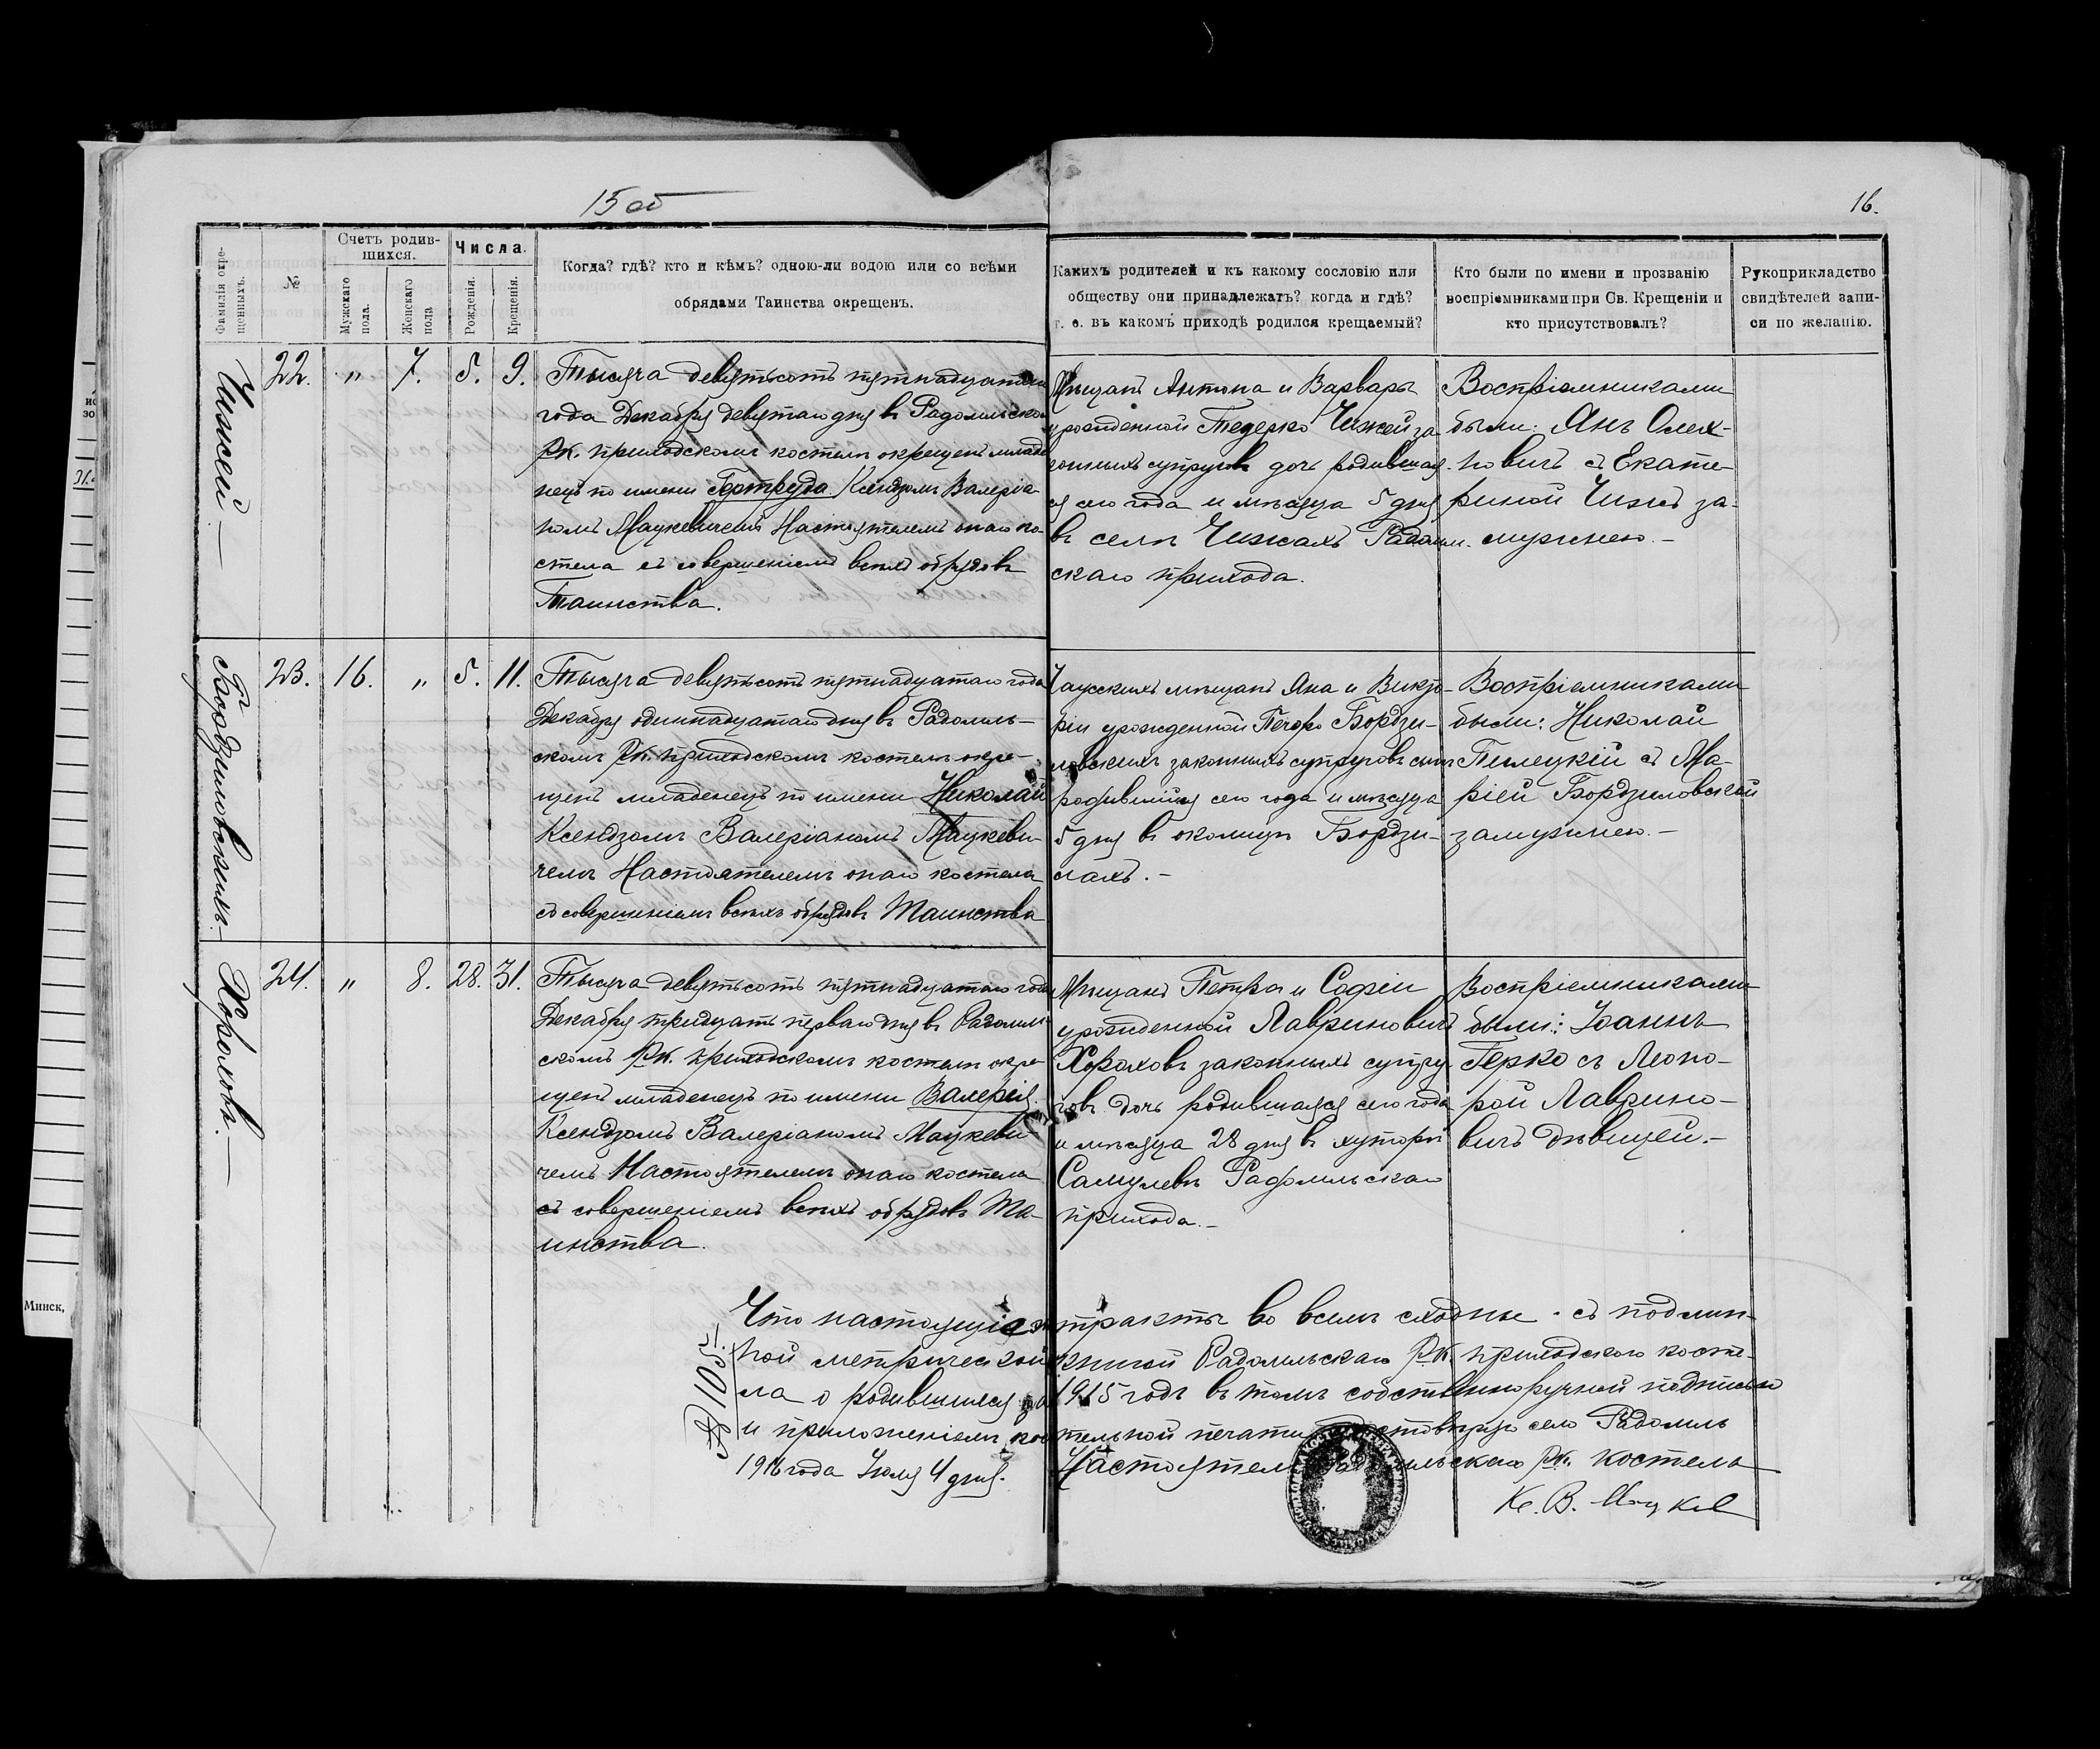 15 об
16.
Фамилія окре-
щенныхъ.
№
Счетъ родив-
шихся.
Мужскаго
пола.
Женскаго
пола
Числа.
Рожденія.
Крещенія.
Когда? гдѣ? кто и кѣмъ? одною-ли водою или со всѣми
обрядами Таинства окрещенъ.
Какихъ родителей и къ какому сословію или
обществу они принадлежатъ? когда и гдѣ?
т. е. въ какомъ приходѣ родился крещаемый?
Кто были по имени и прозванію
воспріемниками при Св. Крещеніи и
кто присутствовалъ?
Рукоприкладство
свидѣтелей запи-
си по желанію.
Чижей
22. " 7. 5. 9.
Тысяча девятьсотъ пятнадцатаго
года Декабря девятаго дня въ Радомльско
Рк. приходскомъ костелѣ окрещенъ младе
нецъ по имени Гертруда Ксендзомъ Валеріа-
номъ Мацкевичемъ Настоятелемъ онаго ко-
стела съ совершеніемъ всѣхъ обрядовъ
Таинства.
Мѣщанъ Антона и Варвары
урожденной Тедерко Чижей за
конныхъ супруговъ дочь родившая-
ся сего года и мѣсяца 5 дня
въ селѣ Чижахъ Радомль-
скаго прихода.
Воспріемниками
были: Янъ Олех-
новичъ съ Екате-
риной Чижъ за-
мужнею.-
Бордзиловскихъ.
23. 16. " 5. 11.
Тысяча девятьсотъ пятнадцатаго года
Декабря одиннадцатаго дня въ Радомль-
скомъ Рк. приходскомъ костелѣ окре-
щенъ младенецъ по имени Николай
Ксендзомъ Валеріаномъ Мацкеви-
чемъ Настоятелемъ онаго костела
съ совершеніемъ всѣхъ обрядовъ Таинства
Чаусскихъ мѣщанъ Яна и Викто-
ріи урожденной Бордзи-
ловскихъ законныхъ супруговъ сынъ
родившійся сего года и мѣсяца
5 дня въ околицѣ Бордзи-
лахъ.-
Воспріемниками
были: Николай
Пилецкій съ Ма-
ріей Бордзиловской
замужнею.-
Хороховъ.
24. " 8. 28. 31.
Тысяча девятьсотъ пятнадцатаго года
Декабря тридцать перваго дня въ Радомль-
скомъ Рк. приходскомъ костелѣ окре-
щенъ младенецъ по имени Валерія.
Ксендзомъ Валеріаномъ Мацкеви
чемъ Настоятелемъ онаго костела
съ совершеніемъ всѣхъ обрядовъ Та-
инства.
Мѣщанъ Петра и Софіи
урожденной Лавриновичъ
Хороховъ законныхъ супру
говъ дочь родившаяся сего года
и мѣсяца 28 дня въ хуторѣ
Самулевѣ Радомльскаго
прихода.-
Воспріемниками
были: Іоаннъ
Герко съ Леоно-
рой Лаврино-
вичъ дѣвицей.-
№ 105.
Что настоящіе экстракты во всемъ сходны съ подлин-
ной метрической книгой Радомльскаго Рк. приходскаго косте-
ла о родившихся за 1915 годъ въ томъ собственноручной подписью
и приложеніемъ костельной печати село Радомль
1916 года Іюля 4 дня. Настоятель Радомльскаго Рк. костела
Кс. В. Мацкев
Минск,